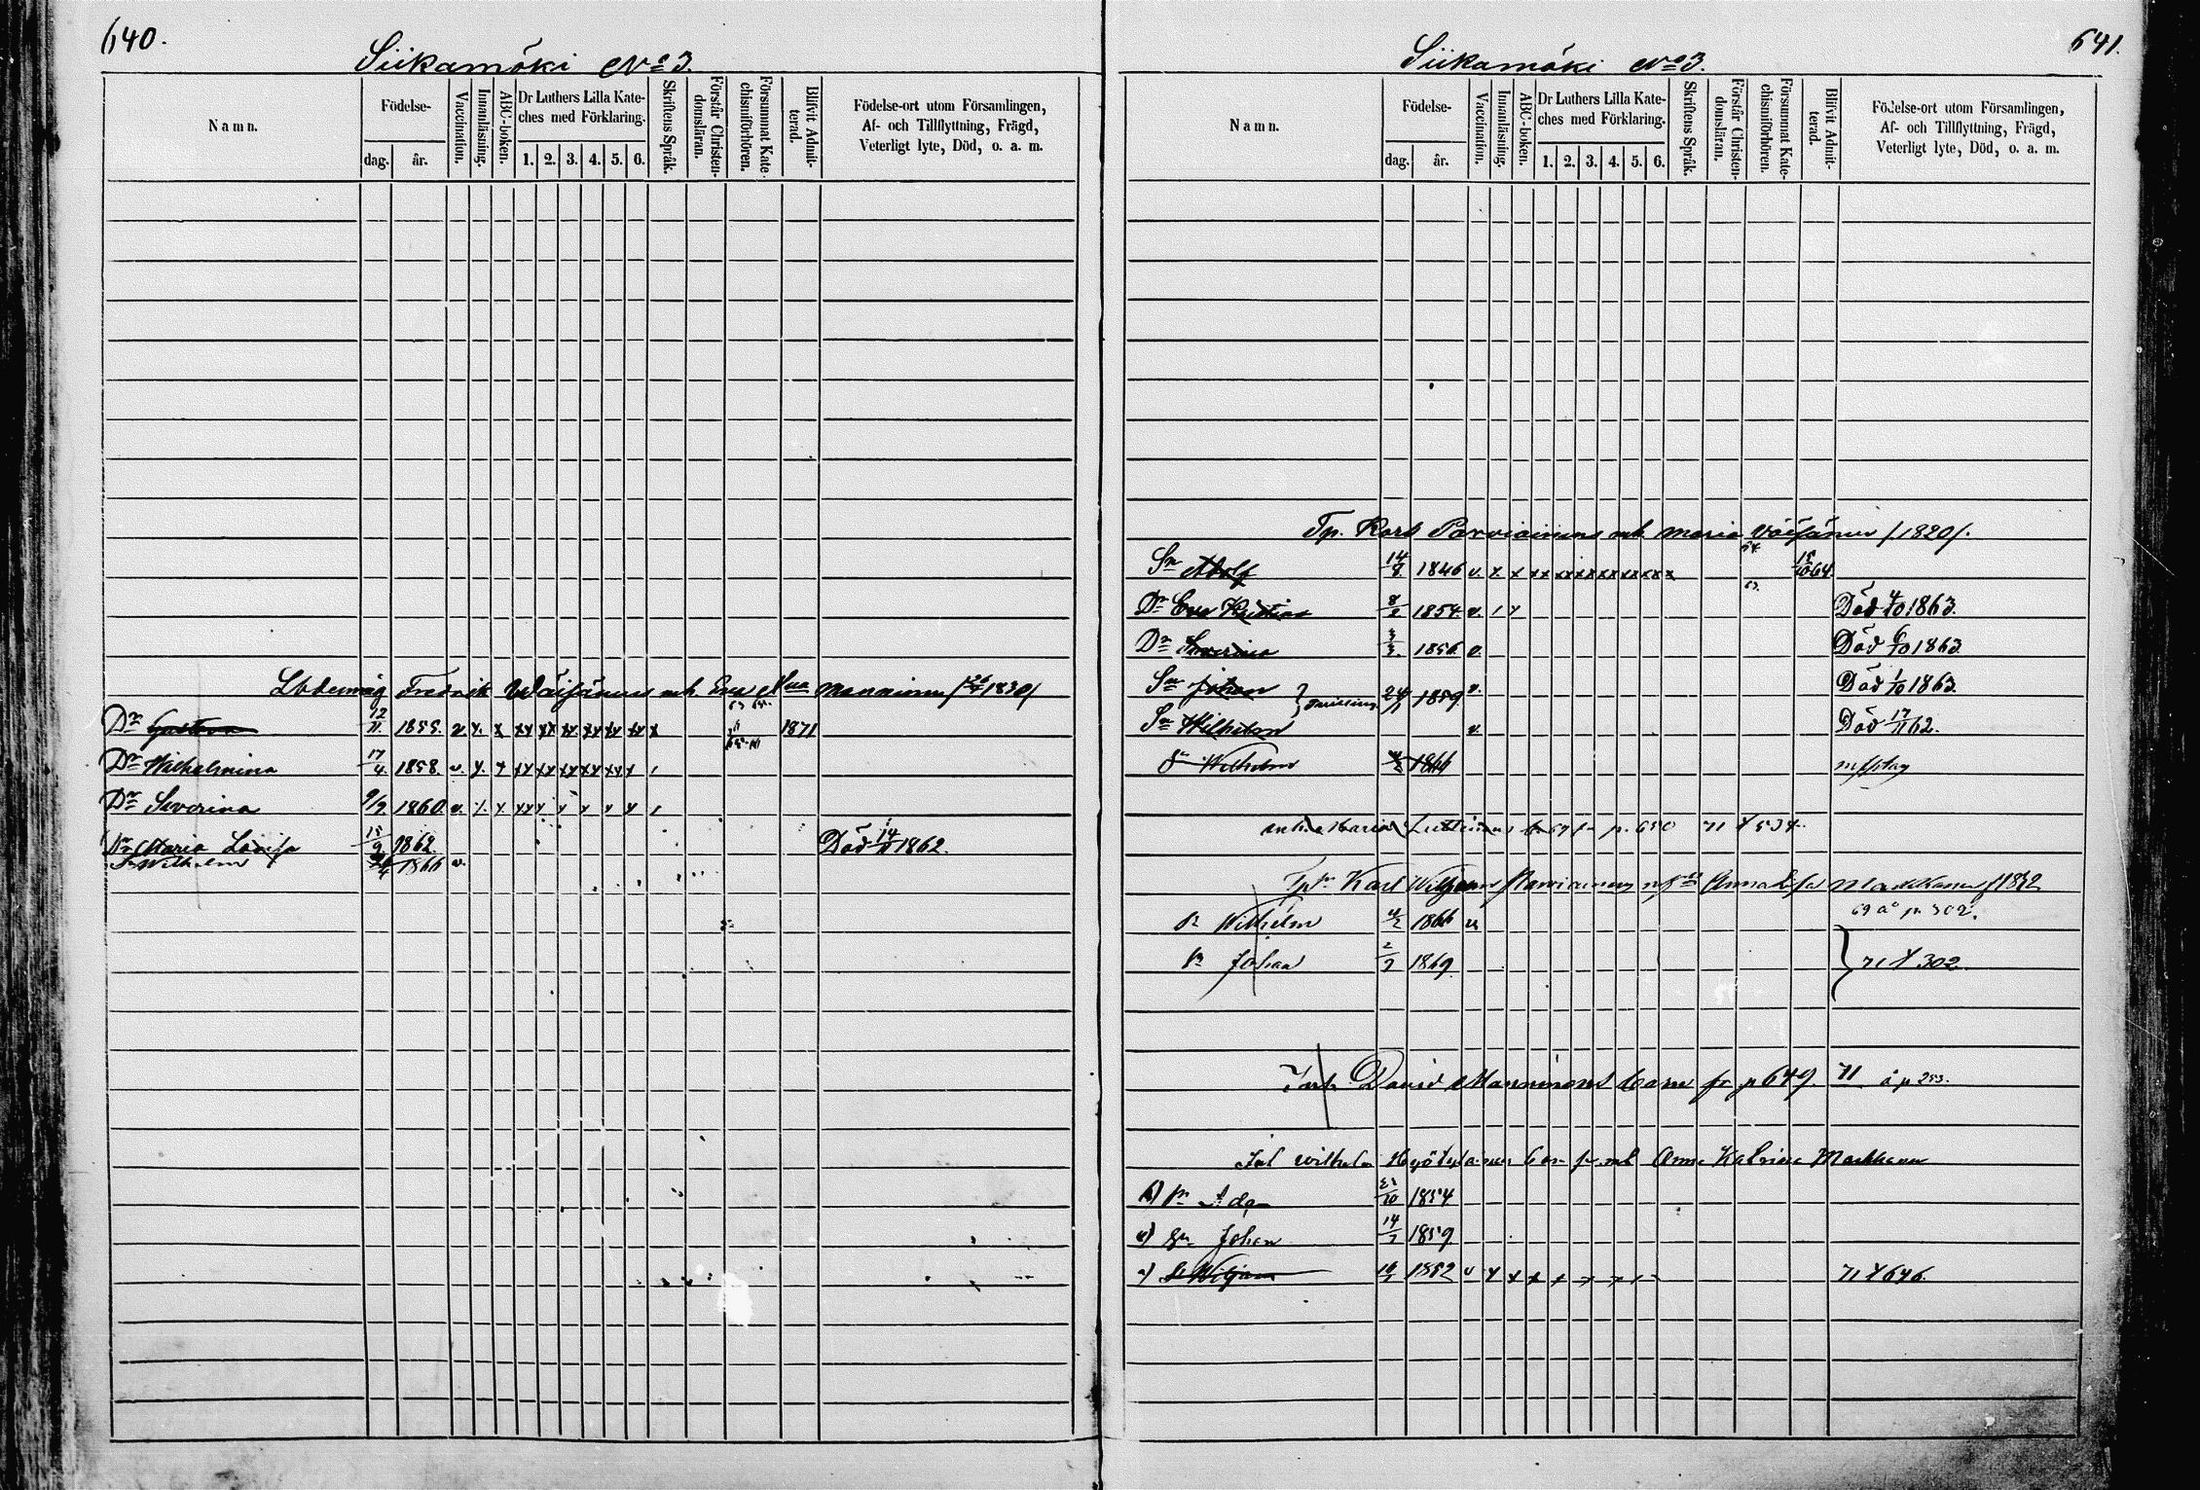 640.
Siikamäki No 3.
Namn.
Födelse-
dag.
år.
Vaccination.
Innanläsning.
ABC-boken.
Dr Luthers Lilla Kate-
ches med Förklaring.
1. 2. 3. 4. 5. 6.
Skriftens Språk.
Förstår Christen-
domsläran.
Försummat Kate-
chismiförhören.
Blifvit Admit-
terad.
Födelse-ort utom Församlingen,
Af- och Tillflyttning, Frägd,
Veterligt lyte, Död, o. a. m.
Fredrik Wäisänens enk. Eva Manninen 1830/
Dr Gustava 12/11 1855. v x. x xx xx xx xx xx xx x 1871
Dr Wilhelmina 17/4. 1858. v. x. x xx xx xx xx xx x
Dr Severina 9/9 1860. v. x. x xx x x x x x
Dr Maria Lovisa 15/9 1862. Död 14/11 1862.
Sn Wilhelm 1866 v.
641.
Siikamäki No 3.
Namn.
Födelse-
dag.
år.
Vaccination.
Innanläsning.
ABC-boken.
Dr Luthers Lilla Kate-
ches med Förklaring.
1. 2. 3. 4. 5. 6.
Skriftens Språk.
Förstår Christen-
domsläran.
Försummat Kate-
chismiförhören.
Blifvit Admit-
terad.
Födelse-ort utom Församlingen,
Af- och Tillflyttning, Frägd,
Veterligt lyte, Död, o. a. m.
Tp. Karl Parviainens enk Maria Väisänen /1820/.
Sn Adolf 14/8 1846 v. x x xx xx xx xx xx xx x 15/10 64.
Dr Eva Kristina 8/2 1854. v. Död 4/10 1863.
Dr Severina 3/3. 1856 v. Död 6/10 1863
Sn Johan 24/1 1859 v. Död 1/10 1863.
Sn Wilhelm v. Död 17/11 62.
Sn Wilhelm 1866
enk. Maria p. 650 71 534.
Karl Wilhelm Parviainen Anna Lisa 1832
69 å p. 302.
Sn Wilhelm 4/2 1866 v
Sn Johan 2/7 1869 71 302.
David Manninens p 649. 71 å p 253.
Wilhelm Anna Katrina Markkanen
b) Sn Adam 1854
c) Sn Johan 14/7 1859
a) 1852 v x x x x x x 71 646.